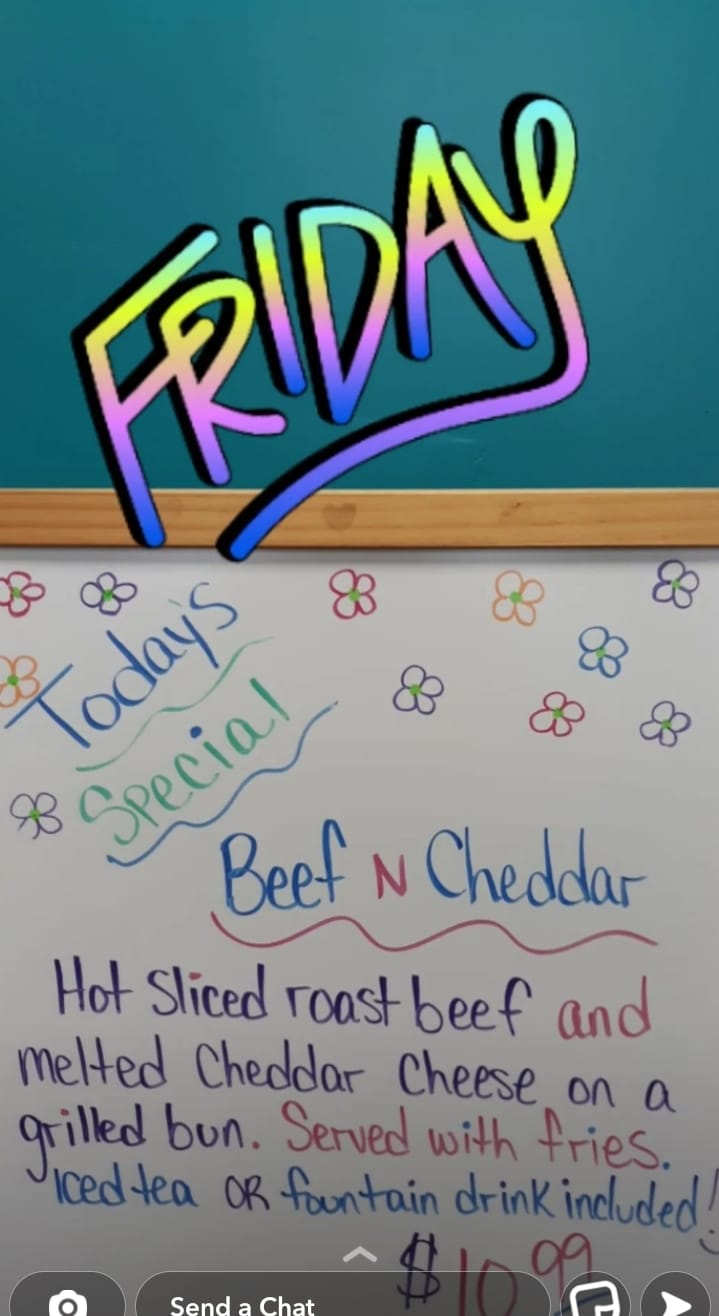 FRIDAY
Today's
Special
Beef N Cheddar
Hot Sliced roast beef and
melted Cheddar Cheese on a
grilled bun. Served with fries.
Iced tea OR fountain drink included!
$10.99
Send a Chat